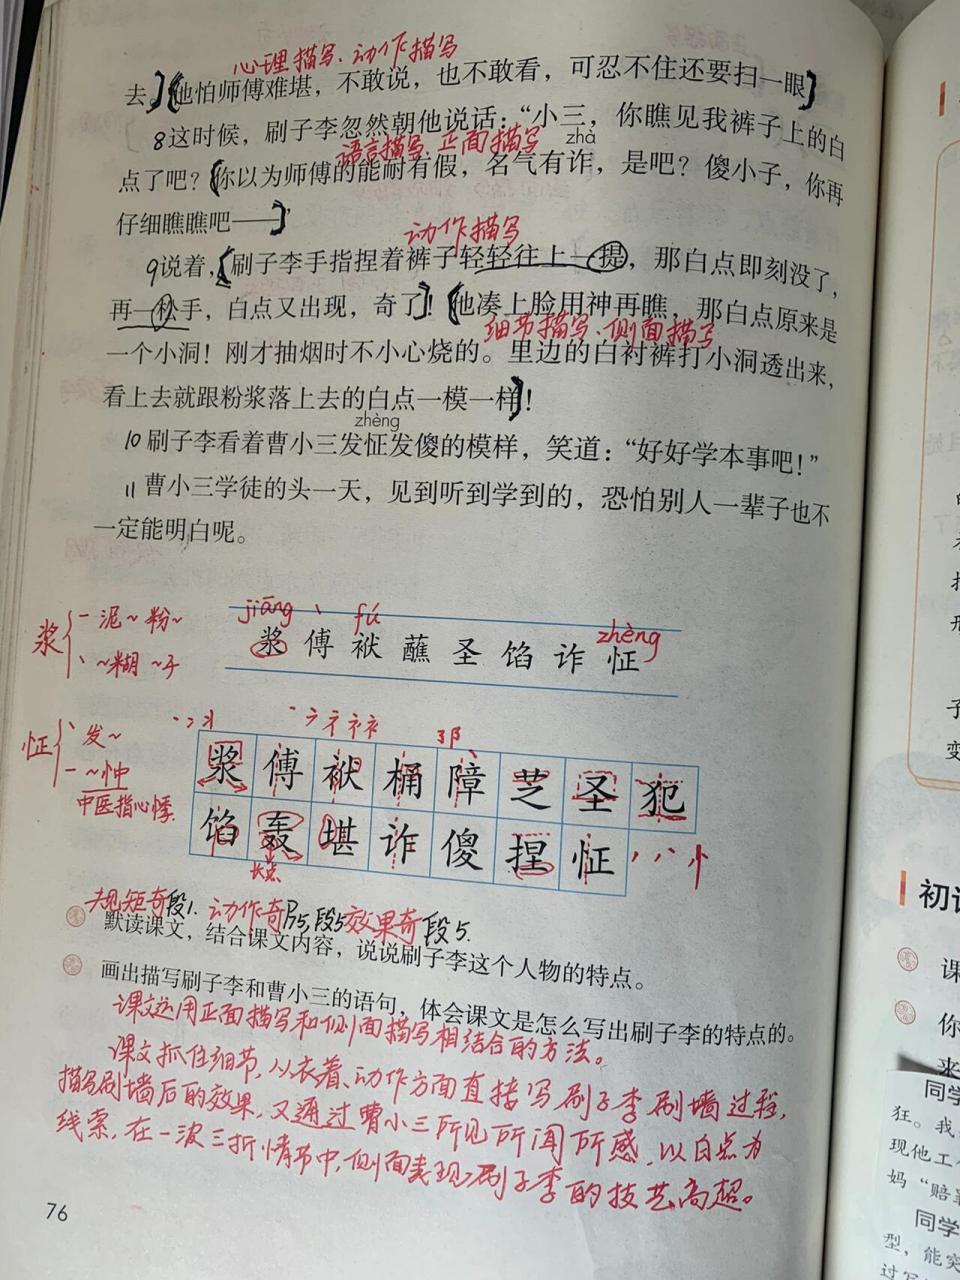 心理描写、动作描写
去。他怕师傅难堪，不敢说，也不敢看，可忍不住还要扫一眼
8这时候，刷子李忽然朝他说话：“小三，你瞧见我裤子上的白
語言描写、正面描写
zhà
点了吧？你以为师傅的能耐有假，名气有诈，是吧？傻小子，你再
仔细瞧瞧吧——”
动作描写
9说着，刷子李手指捏着裤子轻轻往上一提，那白点即刻没了，
再一松手，白点又出现，奇了！他凑上脸用神再瞧，那白点原来是
细节描写、侧面描写
一个小洞！刚才抽烟时不小心烧的。里边的白衬裤打小洞透出来，
看上去就跟粉浆落上去的白点一模一样！
zhèng
10刷子李看着曹小三发怔发傻的模样，笑道：“好好学本事吧！”
11曹小三学徒的头一天，见到听到学到的，恐怕别人一辈子也不
一定能明白呢。
jiāng
fú
zhèng
浆 傅 袱 蘸 圣 馅 诈 怔
浆
一泥～粉～
、～糊 ～子
怔
、发～
一～忡
中医指心悸
浆 傅 袱 桶 障 芝 圣 犯
馅 轰 堪 诈 傻 捏 怔
长点
规矩奇段1. 动作奇 段5 效果奇段5.
默读课文，结合课文内容，说说刷子李这个人物的特点。
画出描写刷子李和曹小三的语句，体会课文是怎么写出刷子李的特点的。
课文运用正面描写和侧面描写相结合的方法。
课文抓住细节，从衣着、动作方面直接写刷子李刷墙过程，
描写刷墙后的效果，又通过曹小三所见所闻所感，以白点为
线索，在一波三折情节中，侧面表现刷子李的技艺高超。
76
初
课
你
来
同学
狂。我
现他工
妈“赔
同学
型，能突
子
变